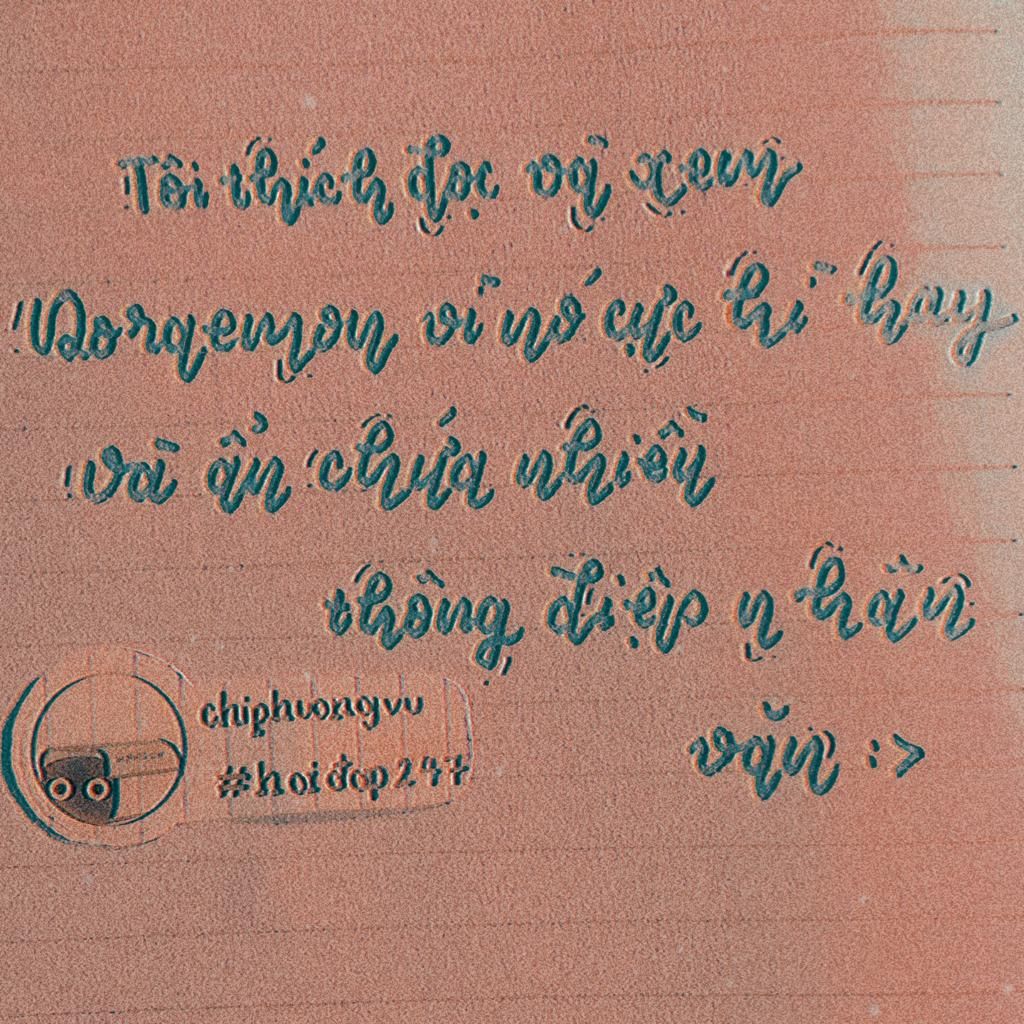 Tôi thích đọc và xem
Doraemon vì nó cực kì hay
và ẩn chứa nhiều
thông điệp nhân
văn :>
chiphuongvu
#hoidap247